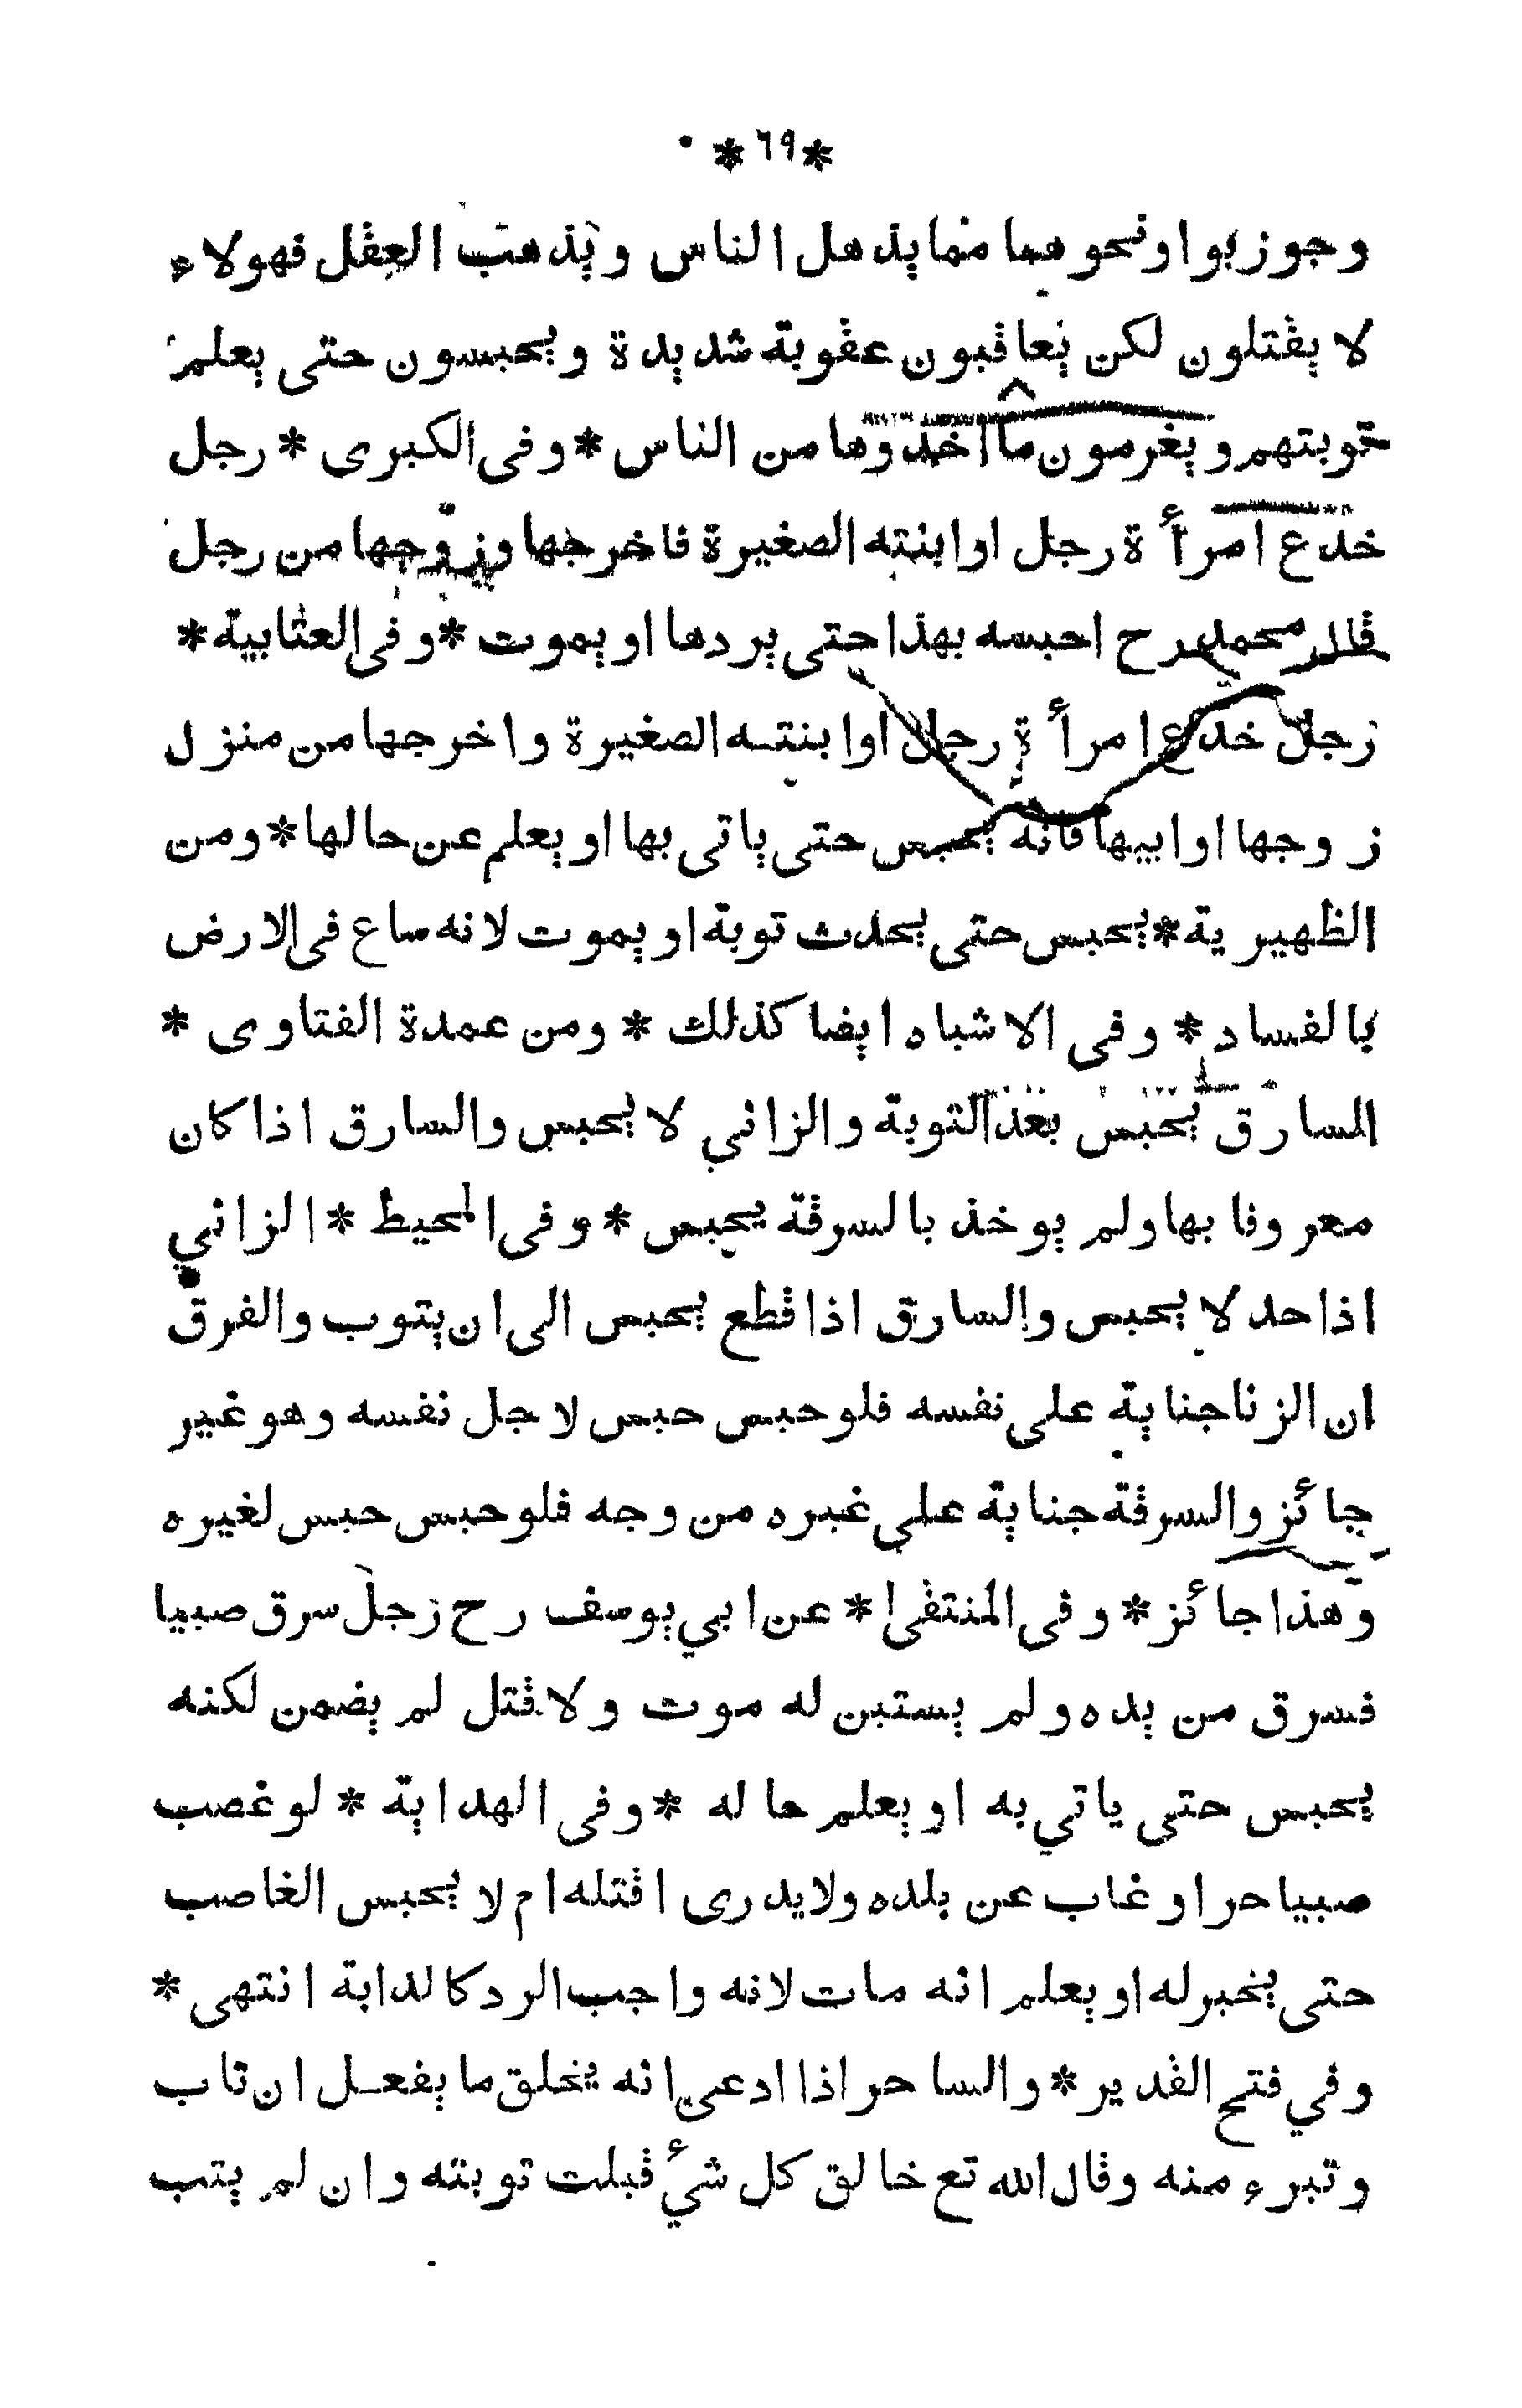 * ٦٩ *
وجوز بوا ونحوهما مما يذهل الناس ويذهب العقل فهولاء
لا يقتلون لكن يعاقبون عقوبة شديدة ويحبسون حتى يعلم
توبتهم ويغرمون ما اخذوها من الناس * وفى الكبرى * رجل
خدع امرأة رجل او ابنته الصغيرة فاخرجها وزوجها من رجل
قال محمد رح احبسه بهذا حتى يردها او يموت * وفى العتابية *
رجل خدع امرأة رجل او ابنته الصغيرة واخرجها من منزل
زوجها او ابيها فانه يحبس حتى ياتى بها او يعلم عن حالها * ومن
الظهيرية * يحبس حتى يحدث توبة او يموت لانه ساع فى الارض
بالفساد * وفى الاشباه ايضا كذلك * ومن عمدة الفتاوى *
السارق يحبس بعد التوبة والزاني لا يحبس والسارق اذا كان
معروفا بها ولم يوخذ بالسرقة يحبس * وفى المحيط * الزاني
اذا حد لا يحبس والسارق اذا قطع يحبس الى ان يتوب والفرق
ان الزنا جناية على نفسه فلو حبس حبس لاجل نفسه وهو غير
جائز والسرقة جناية على غيره من وجه فلو حبس حبس لغيره
وهذا جائز * وفى المنتقى * عن ابي يوسف رح رجل سرق صبيا
فسرق من يده ولم يستبن له موت ولا قتل لم يضمن لكنه
يحبس حتى ياتي به او يعلم حاله * وفى الهداية * لو غصب
صبيا حرا وغاب عن بلده ولا يدرى اقتله ام لا يحبس الغاصب
حتى يخبر له او يعلم انه مات لانه واجب الرد كالدابة انتهى *
وفي فتح القدير * والساحر اذا ادعى انه يخلق ما يفعل ان تاب
وتبرء منه وقال الله تع خالق كل شئ قبلت توبته وان لم يتب